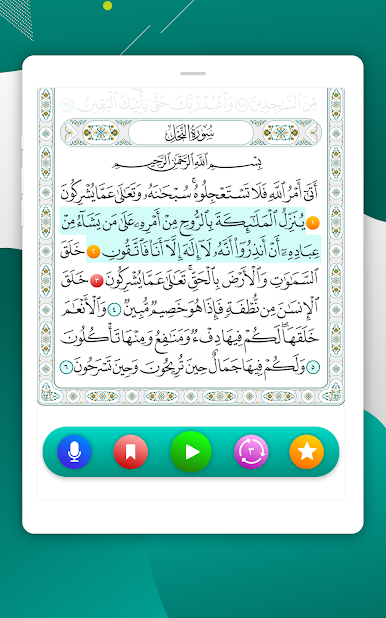 مِّنَ ٱلسَّٰجِدِينَ ٩٨ وَٱعۡبُدۡ رَبَّكَ حَتَّىٰ يَأۡتِيَكَ ٱلۡيَقِينُ ٩٩
سُورَةُ النَّحْلِ
بِسْمِ ٱللَّهِ ٱلرَّحْمَٰنِ ٱلرَّحِيمِ
أَتَىٰٓ أَمۡرُ ٱللَّهِ فَلَا تَسۡتَعۡجِلُوهُۚ سُبۡحَٰنَهُۥ وَتَعَٰلَىٰ عَمَّا يُشۡرِكُونَ
١ يُنَزِّلُ ٱلۡمَلَٰٓئِكَةَ بِٱلرُّوحِ مِنۡ أَمۡرِهِۦ عَلَىٰ مَن يَشَآءُ مِنۡ
عِبَادِهِۦٓ أَنۡ أَنذِرُوٓاْ أَنَّهُۥ لَآ إِلَٰهَ إِلَّآ أَنَا۠ فَٱتَّقُونِ ٢ خَلَقَ
ٱلسَّمَٰوَٰتِ وَٱلۡأَرۡضَ بِٱلۡحَقِّۚ تَعَٰلَىٰ عَمَّا يُشۡرِكُونَ ٣ خَلَقَ
ٱلۡإِنسَٰنَ مِن نُّطۡفَةٖ فَإِذَا هُوَ خَصِيمٞ مُّبِينٞ ٤ وَٱلۡأَنۡعَٰمَ
خَلَقَهَاۖ لَكُمۡ فِيهَا دِفۡءٞ وَمَنَٰفِعُ وَمِنۡهَا تَأۡكُلُونَ
٥ وَلَكُمۡ فِيهَا جَمَالٌ حِينَ تُرِيحُونَ وَحِينَ تَسۡرَحُونَ ٦
٣